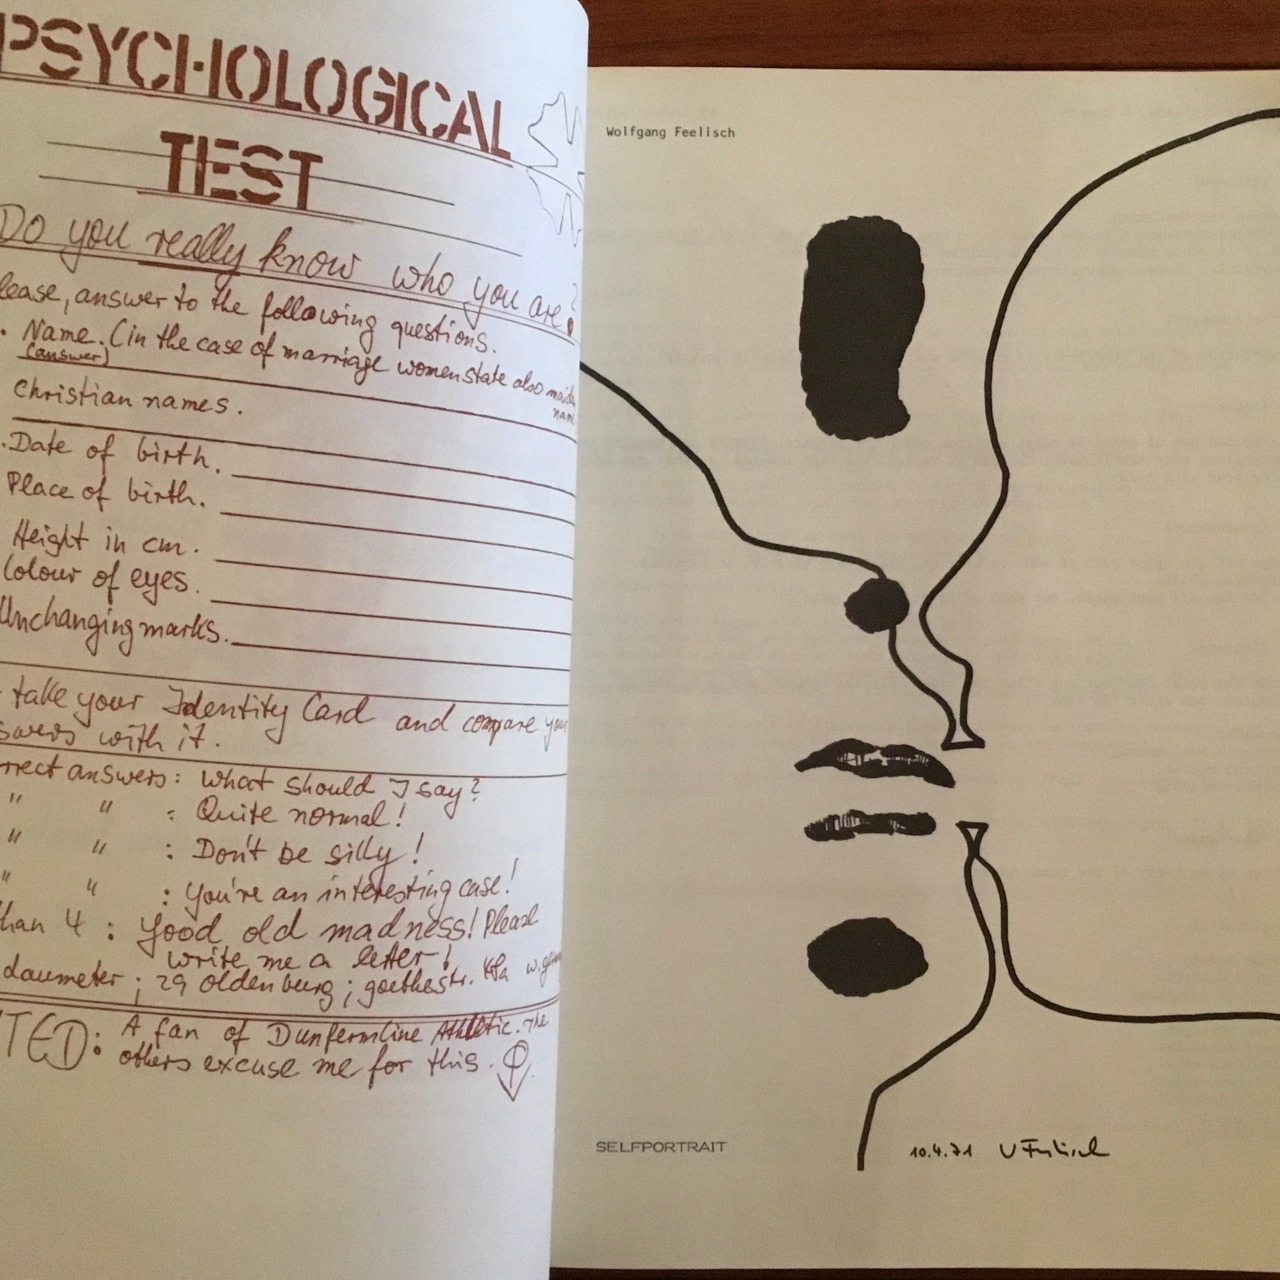 PSYCHOLOGICAL
TEST
Do you really know who you are?
lease, answer to the following questions.
. Name. (in the case of marriage women state also maiden
(answer)
name
Christian names.
.Date of birth.
Place of birth.
Height in cm.
Colour of eyes.
Unchanging marks.
take your Identity Card and compare your
swers with it.
rrect answers: What should I say?
" " : Quite normal!
" " : Don't be silly!
" " : You're an interesting case!
than 4 : good old madness! Please
write me a letter!
daumeter ; 29 oldenburg ; goethestr.
TED: A fan of Dunfermline Athletic. The
others excuse me for this.
Wolfgang Feelisch
SELFPORTRAIT
10.4.71 W Feelisch